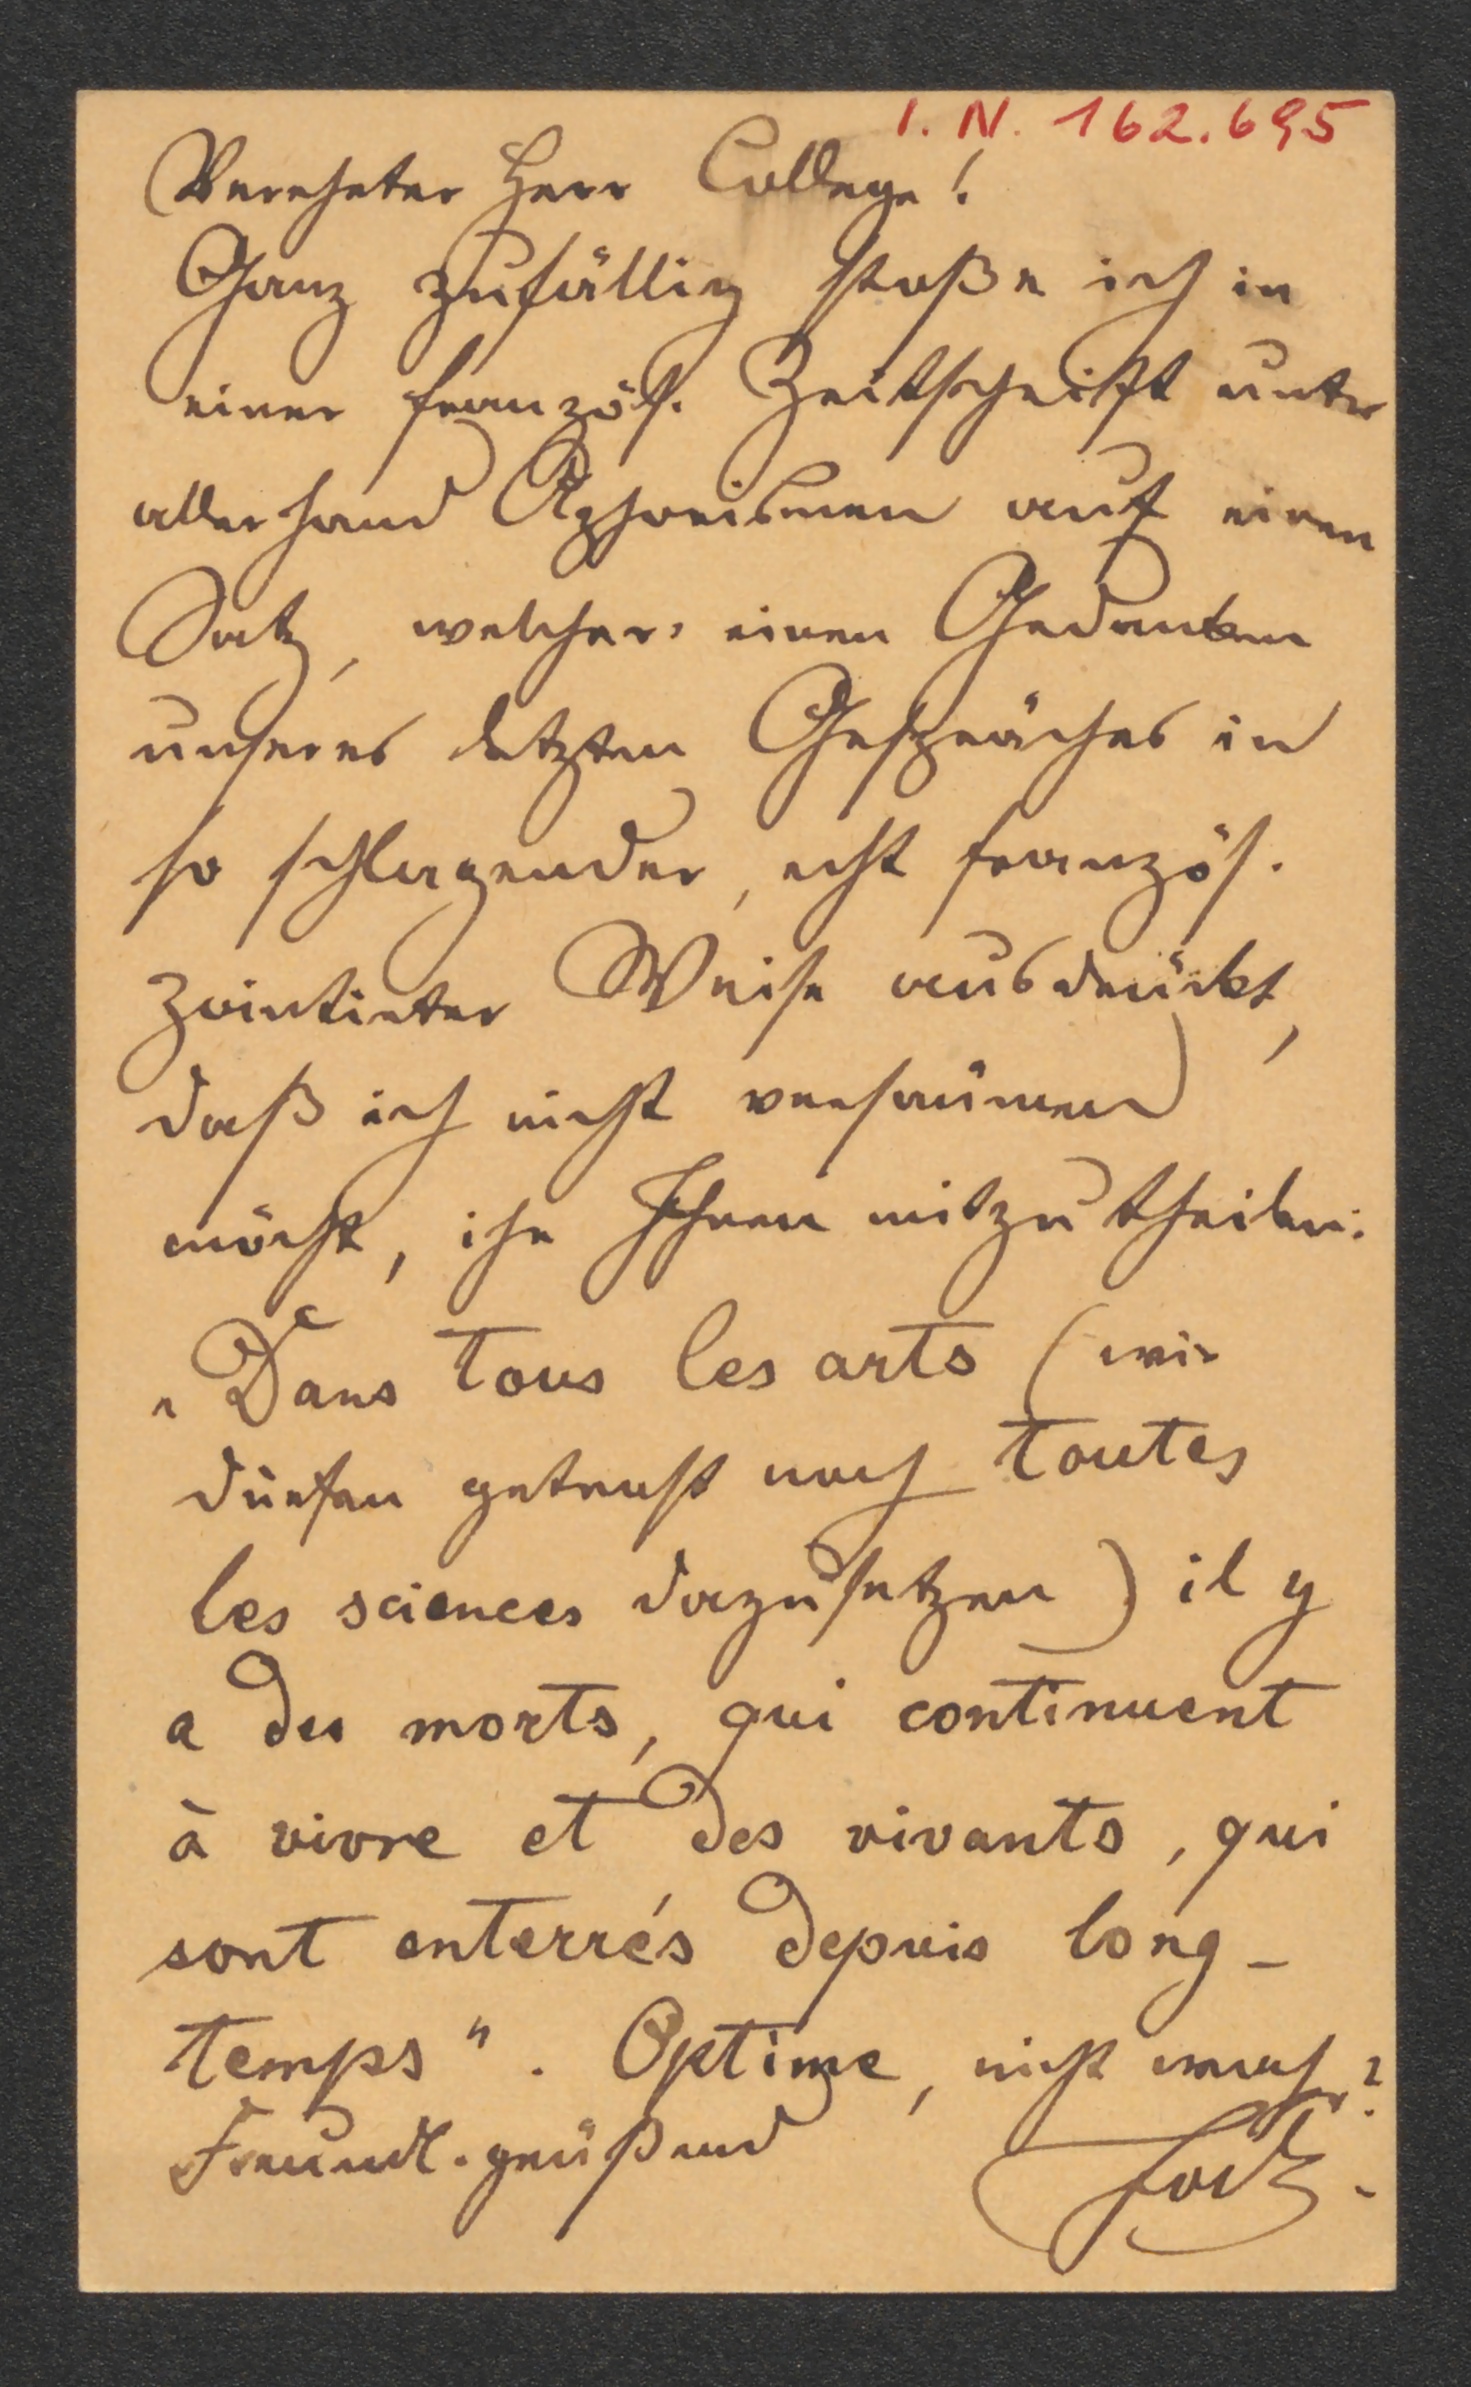 I. N. 162.695
Verehrter Herr College!
Ganz zufällig stoße ich in
einer französ. Zeitschrift unter
allerhand Aphorismen auf einen
Satz, welcher einen Gedanken
unseres letzten Gespräches in
so schlagender, echt französ.
pointirter Weise ausdrückt,
daß ich nicht versäumen
möcht, ihn Ihnen mitzutheilen:
„Dans tous les arts (wir
dürfen getrost noch toutes
les sciences dazusetzen) il y
a des morts, qui continuent
à vivre et des vivants, qui
sont enterrés depuis long-
temps". Optime, nicht wahr?
Freundl. grüßend